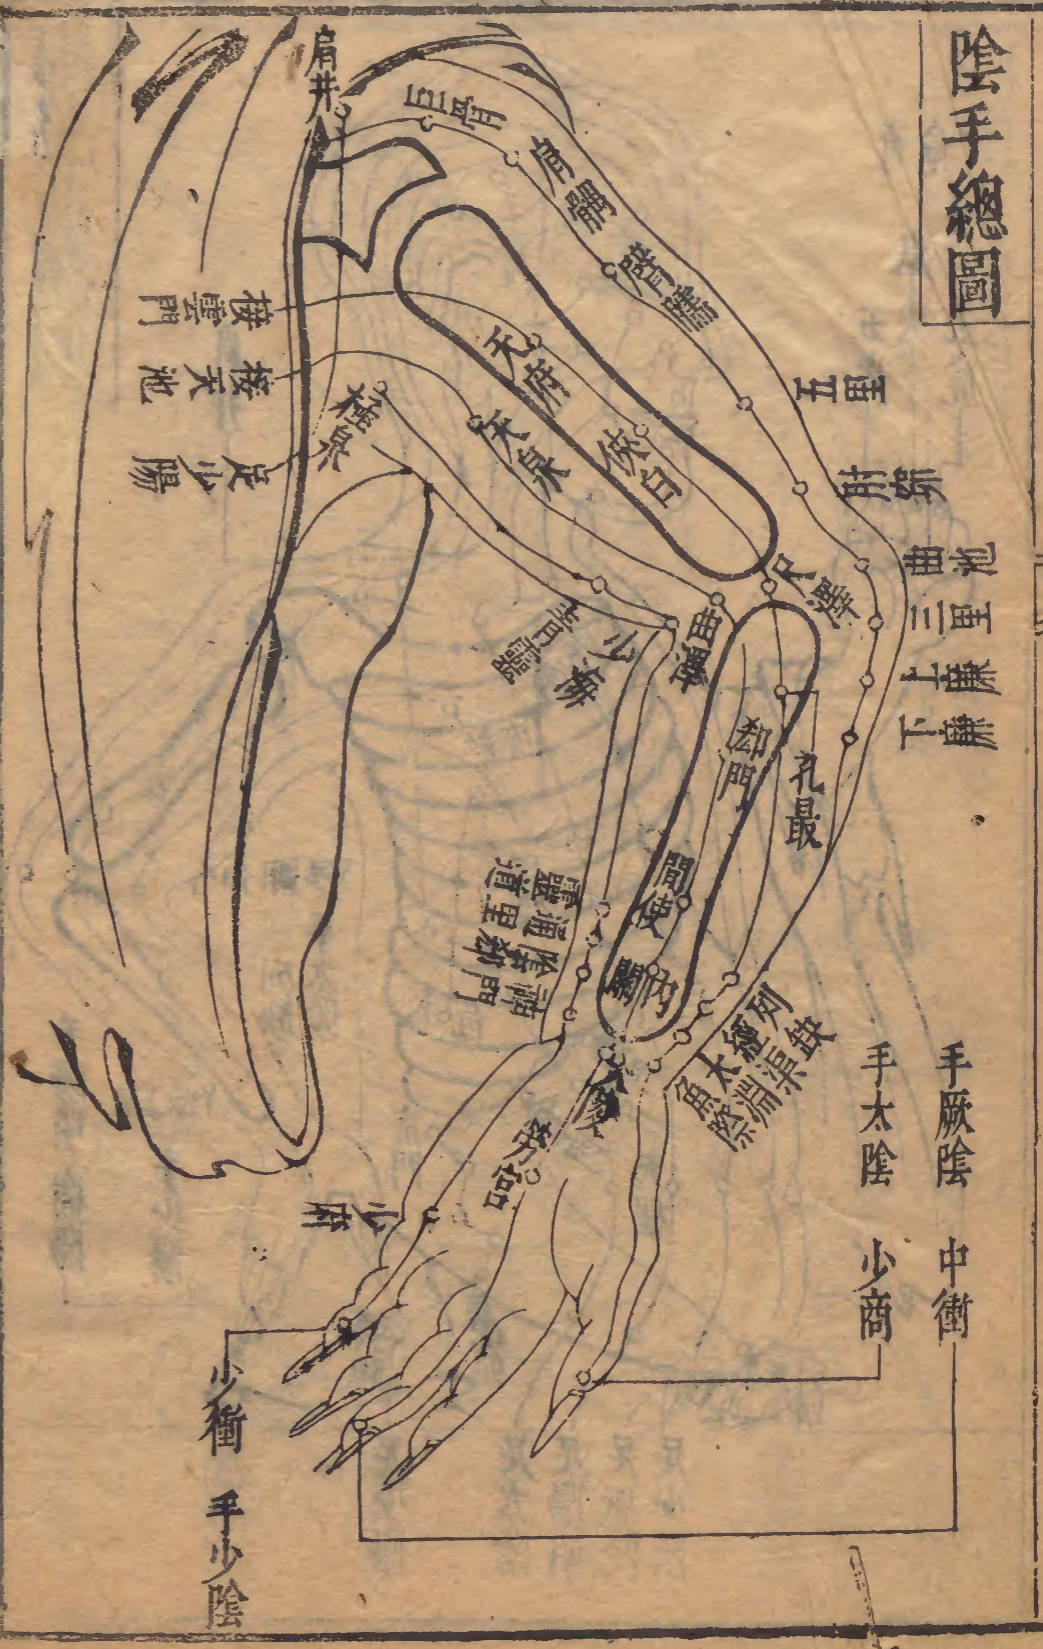 陰手總圖
肩井
巨骨
肩髃
臂臑
五里
肘窌
曲池
三里
上廉
下廉
接雲門
接天池
足少陽
極泉
天府
俠白
天泉
尺澤
曲澤
青靈
少海
郄門
孔最
間使
內關
靈道
通里
陰郄
神門
列缺
經渠
太淵
魚際
大陵
勞宮
少府
手厥陰 中衝
手太陰 少商
少衝 手少陰